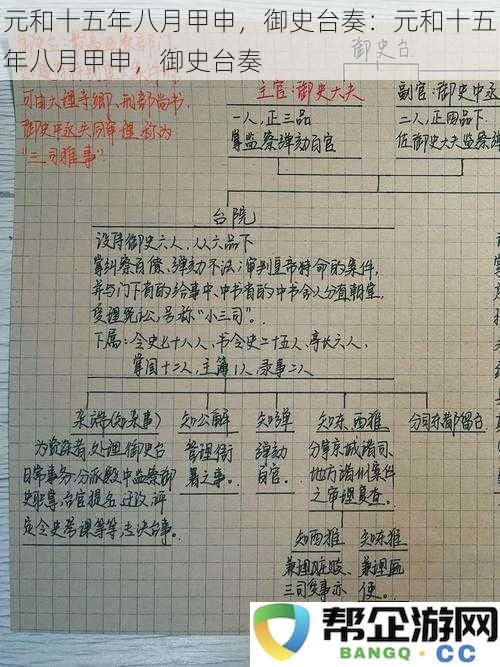 元和十五年八月甲申，御史台奏：元和十五
年八月甲申，御史台奏
御史台
可由大理寺卿、刑部尚书、
御史中丞共同审理，称为
"三司推事"
主官：御史大夫
一人，正三品
掌监察弹劾百官
副官：御史中丞
二人，正四品下
佐御史大夫监察
台院
设侍御史六人，从六品下
掌纠察百僚、弹劾不法；审判皇帝特命的案件，
并与门下省的给事中、中书省的中书舍人分直朝堂，
受理冤讼，号称"小三司"。
下属：令史七十八人、书令史二十五人、亭长六人，
掌固十二人，主簿1人，录事二人
杂端(知杂事)
为资深者，处理御史台
日常事务：分派殿中监察御
史职掌，台官提名、迁改，评
定令史考课等等，专决台事。
知公廨
管理衙
署之事。
知弹
弹劾
百官。
知东、西推
分掌京城诸司、
地方诸州案件
之审理复查。
分司东都留台
知西推
兼理赃赎、
三司受事亦
知东推
兼理匦
使。
帮企游网
BANGQ!.COM